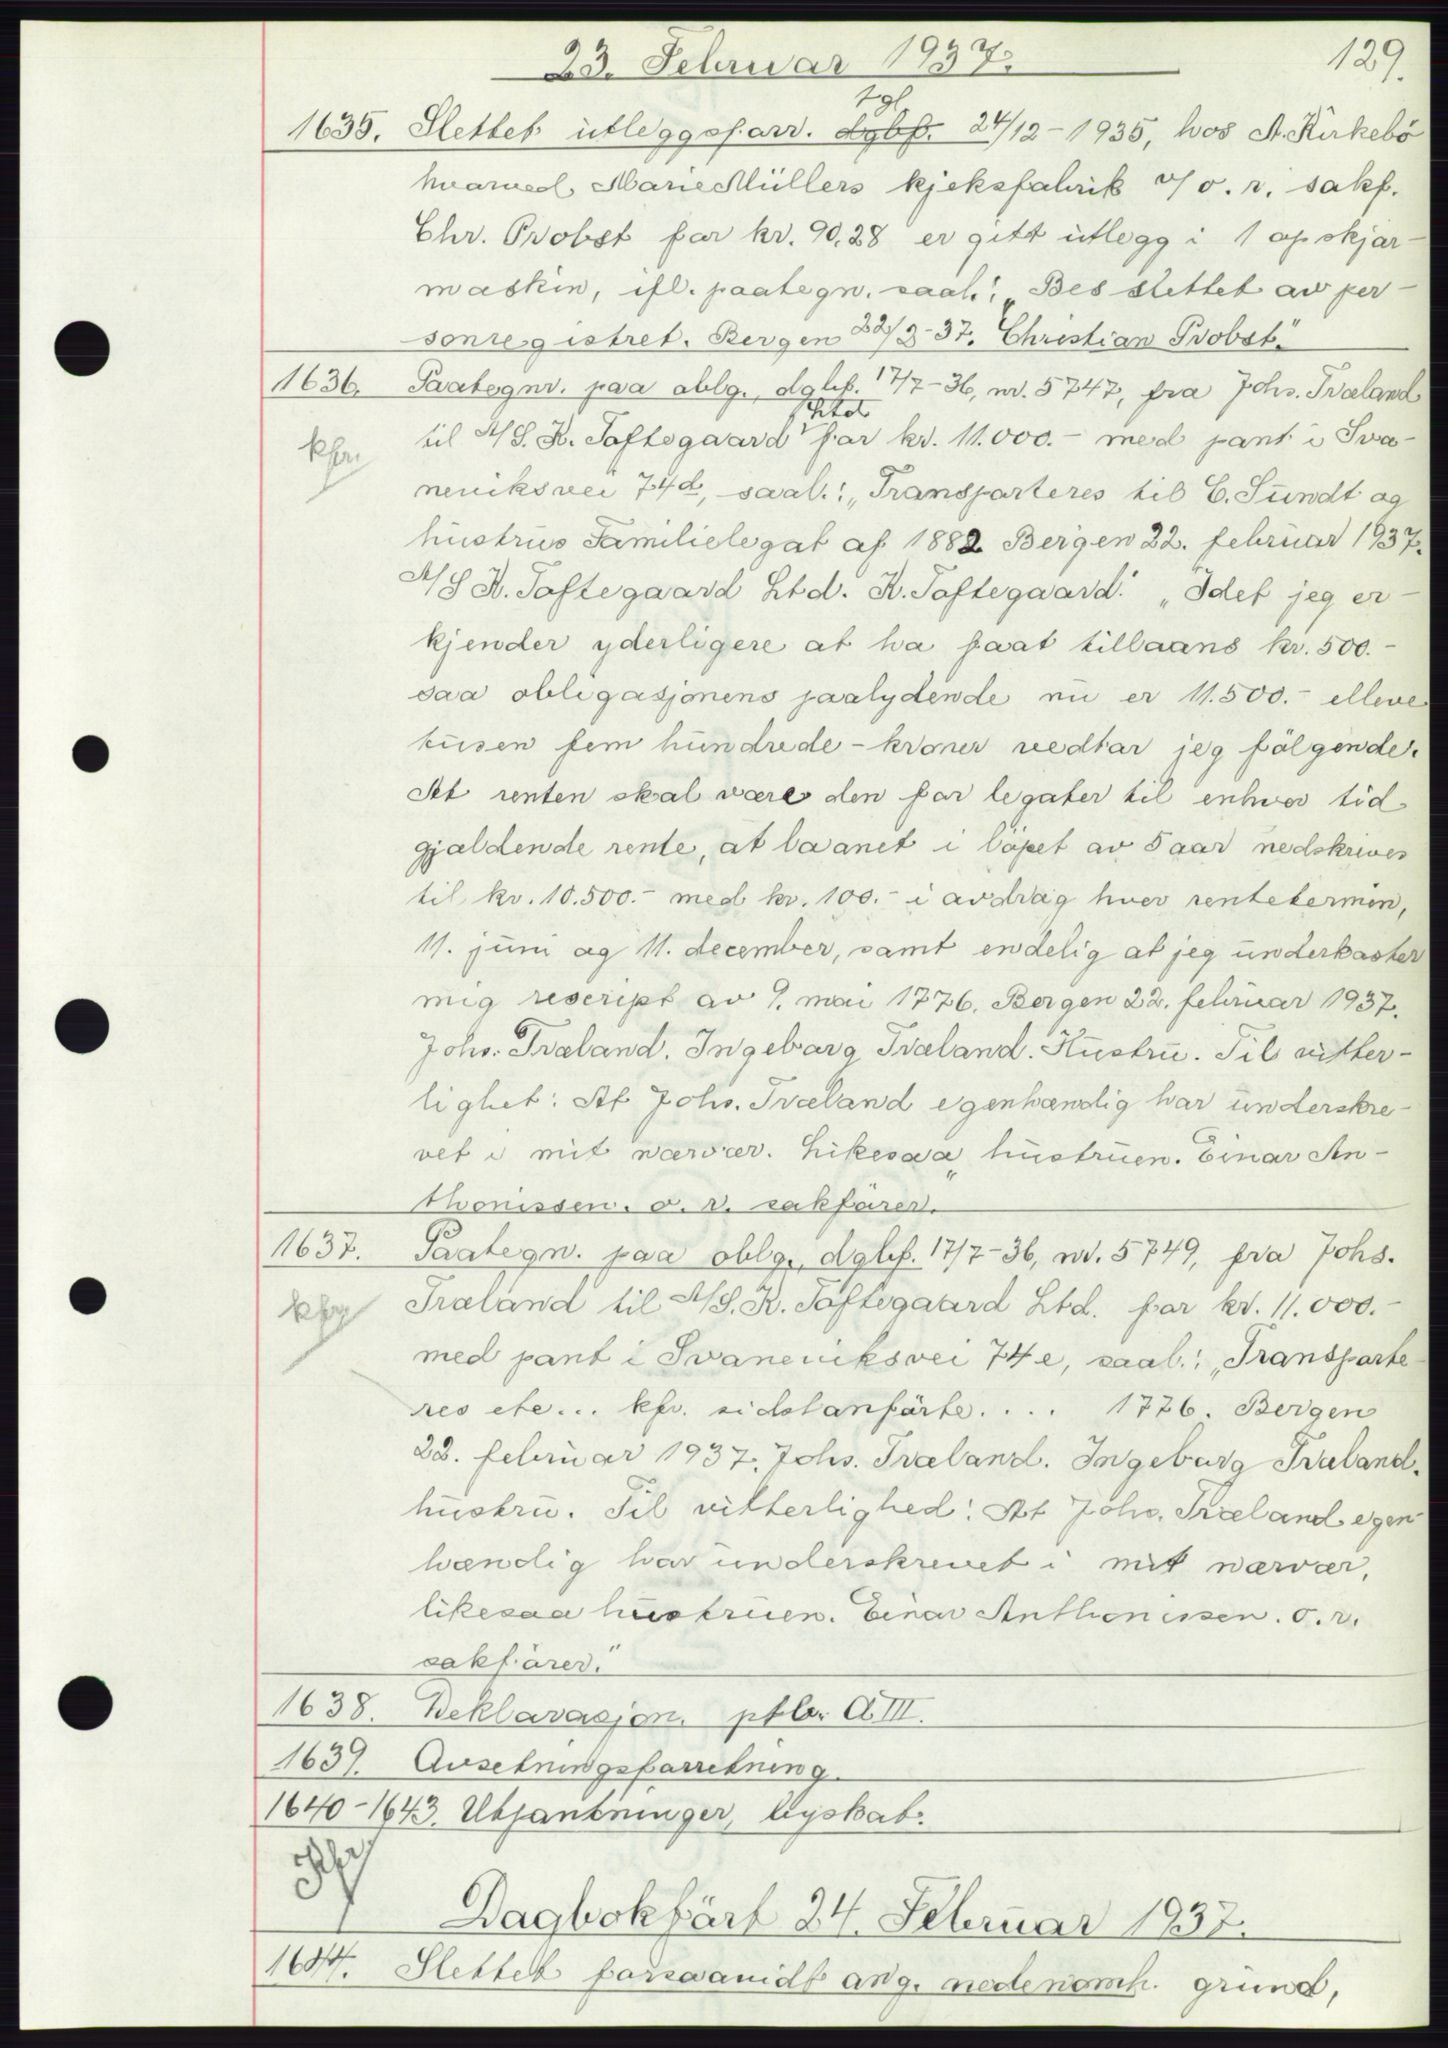 23. Februar 1937.
129.
tgl.
1635. Slettet utleggsforr. dgbf. 24/12-1935, hos A. Kirkebö
hvorved Marie Müllers kjeksfabrik v/ o. r. sakf.
Chr. Probst for kr. 90,28 er gitt utlegg i 1 opskjær-
maskin, ifl. paategn. saal.: "Bes slettet av per-
sonregistret. Bergen 22/2-37. Christian Probst."
1636. Paategn. paa oblg., dgbf. 17/7-36, nr. 5747, fra Johs. Træland
Ltd
kfr.
til A/S. K. Toftegaard for kr. 11.000.- med pant i Sva-
neviksvei 74d, saal.: "Transporteres til C. Sundt og
hustrus Familielegat af 1882 Bergen 22. februar 1937.
A/S K. Toftegaard Ltd. K. Toftegaard." "Idet jeg er-
kjender yderligere at ha faat tillaans kr. 500.-
saa obligasjonens paalydende nu er 11.500.- elleve
tusen fem hundrede - kroner vedtar jeg følgende.
At renten skal være den for legater til enhver tid
gjældende rente, at laanet i löpet av 5 aar nedskrives
til kr. 10.500.- med kr. 100.- i avdrag hver rentetermin,
11. juni og 11. december, samt endelig at jeg underkaster
mig rescript av 9. mai 1776. Bergen 22. februar 1937.
Johs. Træland. Ingeborg Træland. Hustru. Til vitter-
lighet: At Johs. Træland egenhændig har underskre-
vet i mit nærvær. Likesaa hustruen. Einar An-
thonissen. o. r. sakförer."
1637. Paategn. paa oblg., dgbf. 17/7-36, nr. 5749, fra Johs.
kfr
Træland til A/S. K. Toftegaard Ltd. for kr. 11.000.-
med pant i Svaneviksvei 74 e, saal.: "Transporte-
res etc... kfr. sidstanförte.... 1776. Bergen
22. februar 1937. Johs. Træland. Ingeborg Træland.
hustru. Til vitterlighed: At Johs. Træland egen-
hændig har underskrevet i mit nærvær,
likesaa hustruen. Einar Anthonissen. o. r.
sakförer."
1638. Deklarasjon. ptbr. A III.
1639. Avsetningsforretning.
1640-1643. Utpantninger, byskat.
Dagbokfört 24. Februar 1937.
1644. Slettet forsaavidt ang. nedenomh. grund,